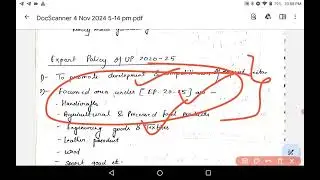 DocScanner 4 Nov 2024 5-14 pm.pdf
Export Policy of UP 2020-25
1)- To promote development & competitiveness of
2)- Focused area under [EP-20-25] are -
- Handicrafts
- Agricultural & Processed food products
- Engineering goods & Textiles
- Leather product
- wood
- sport good et.